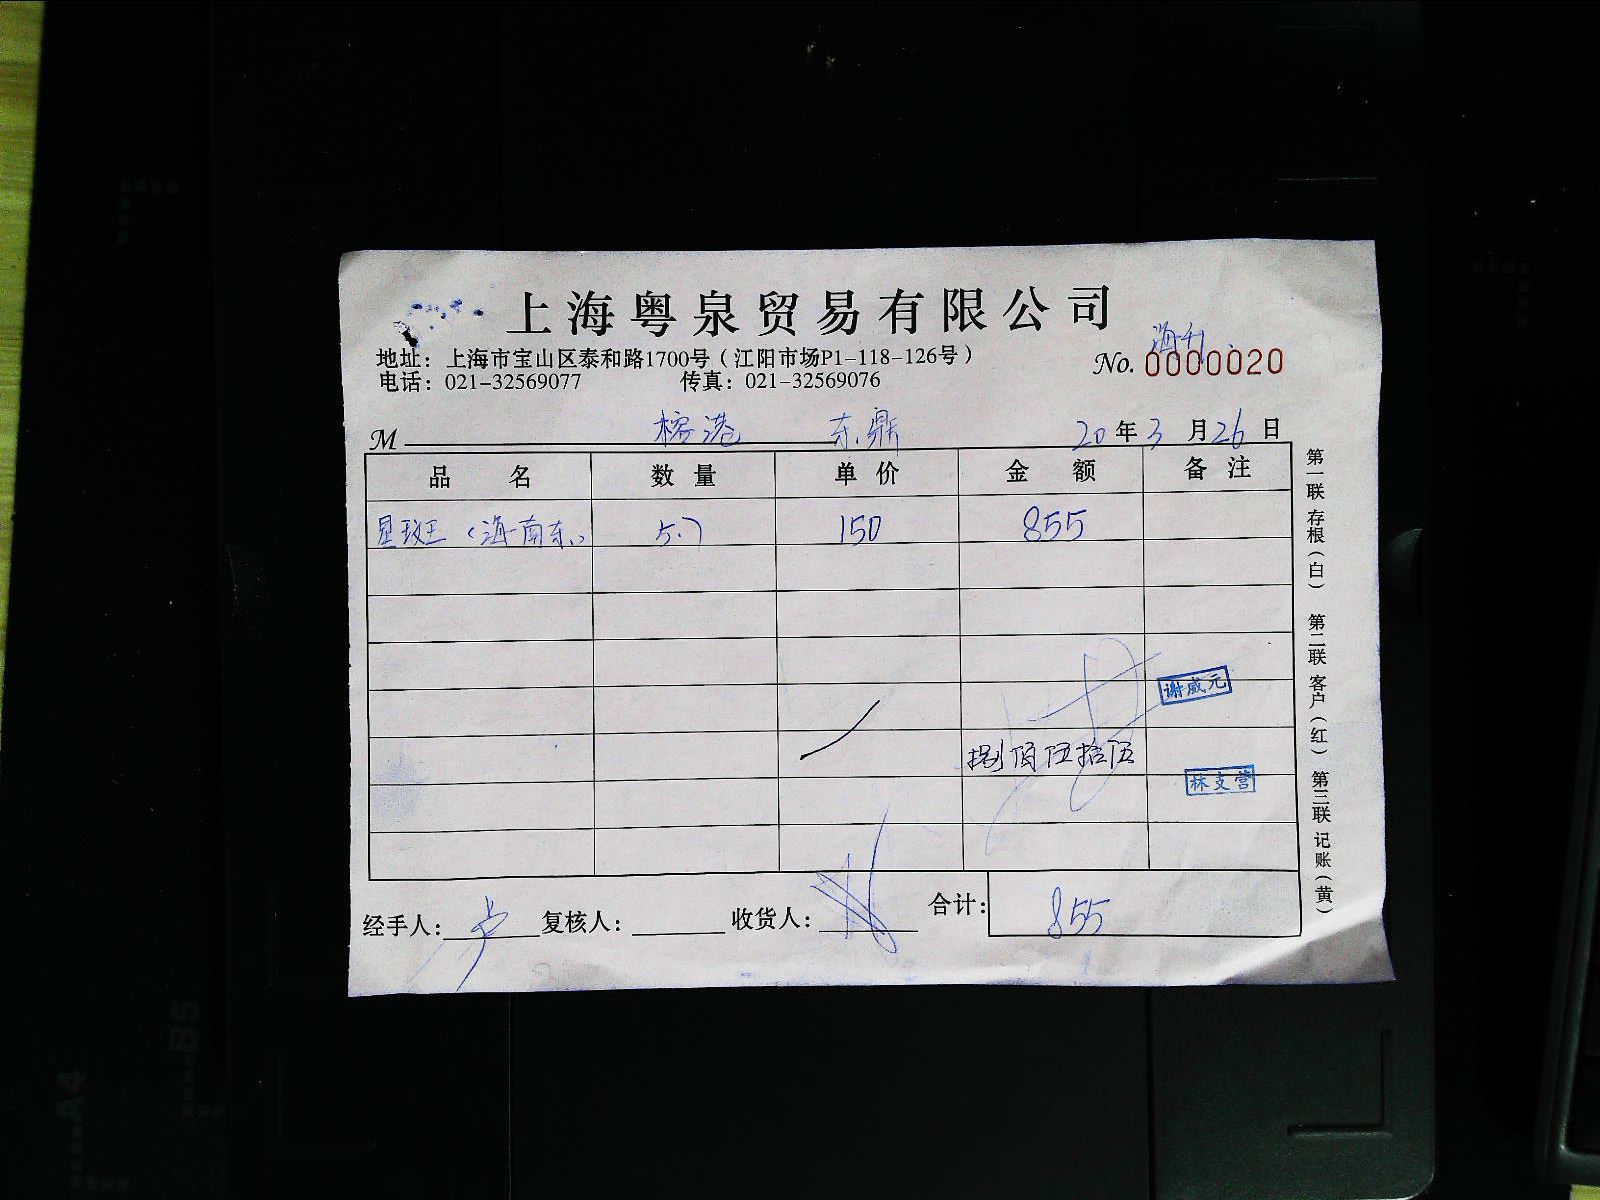 上海粤泉贸易有限公司
地址：上海市宝山区泰和路1700号（江阳市场P1-118-126号）
电话：021-32569077 传真：021-32569076
No. 0000020
M 榕港 东鼎 20年3月26日
品名 数量 单价 金额 备注
星斑（海南东） 5.7 150 855
谢威元
捌佰伍拾伍
林支营
经手人： 复核人： 收货人： 合计： 855
第一联 存根（白） 第二联 客户（红） 第三联 记账（黄）
B5
A4